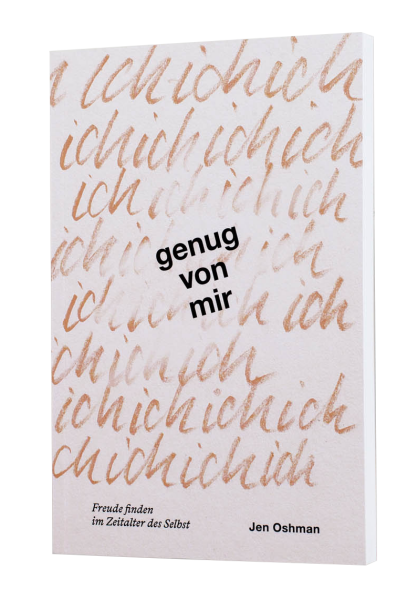 ı ichichich
ichichichich
ich ich ich ich
ichich ich ich
genug
von
mir
ich ich ich ich
chichich
ichichichich
chichichich
Freude finden
im Zeitalter des Selbst
Jen Oshman